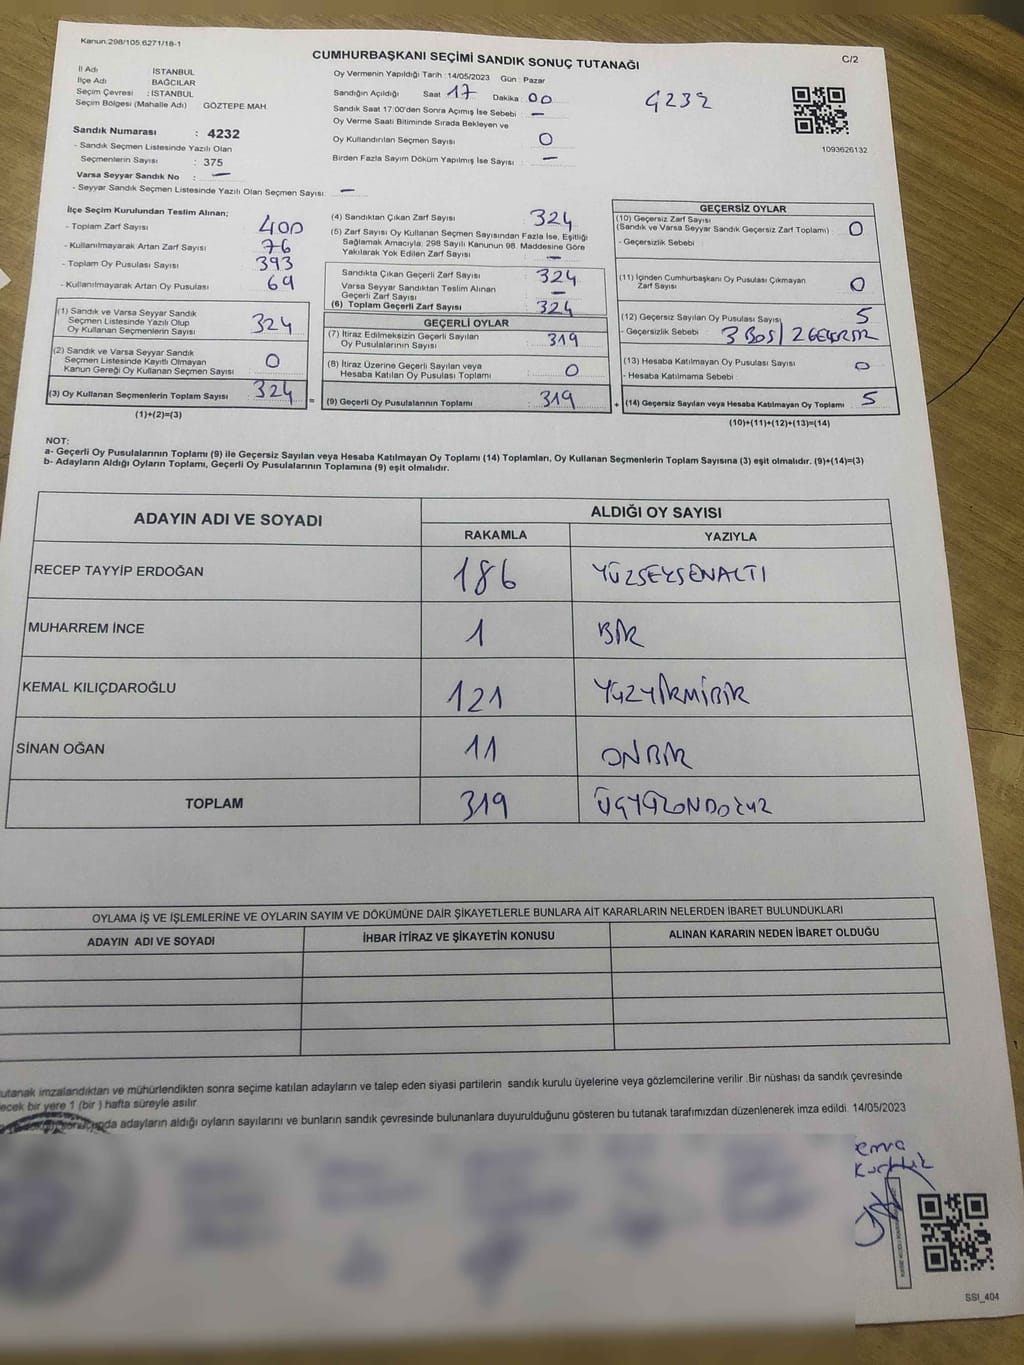 Kanun.298/105.6271/18-1
CUMHURBAŞKANI SEÇİMİ SANDIK SONUÇ TUTANAĞI
C/2
İl Adı İSTANBUL
İlçe Adı BAĞCILAR
Seçim Çevresi : İSTANBUL
Seçim Bölgesi (Mahalle Adı) GÖZTEPE MAH
Sandık Numarası : 4232
- Sandık Seçmen Listesinde Yazılı Olan
Seçmenlerin Sayısı : 375
Varsa Seyyar Sandık No : —
- Seyyar Sandık Seçmen Listesinde Yazılı Olan Seçmen Sayısı: —
Oy Vermenin Yapıldığı Tarih : 14/05/2023 Gün : Pazar
Sandığın Açıldığı Saat 17 Dakika 00
Sandık Saat 17:00'den Sonra Açımış İse Sebebi —
Oy Verme Saati Bitiminde Sırada Bekleyen ve
Oy Kullandırılan Seçmen Sayısı 0
Birden Fazla Sayım Döküm Yapılmış İse Sayısı —
4232
1093626132
İlçe Seçim Kurulundan Teslim Alınan;
- Toplam Zarf Sayısı 400
- Kullanılmayarak Artan Zarf Sayısı 76
- Toplam Oy Pusulası Sayısı 393
- Kullanılmayarak Artan Oy Pusulası 69
(1) Sandık ve Varsa Seyyar Sandık
Seçmen Listesinde Yazılı Olup
Oy Kullanan Seçmenlerin Sayısı 324
(2) Sandık ve Varsa Seyyar Sandık
Seçmen Listesinde Kayıtlı Olmayan
Kanun Gereği Oy Kullanan Seçmen Sayısı 0
(3) Oy Kullanan Seçmenlerin Toplam Sayısı 324
(1)+(2)=(3)
(4) Sandıktan Çıkan Zarf Sayısı 324
(5) Zarf Sayısı Oy Kullanan Seçmen Sayısından Fazla İse, Eşitliği
Sağlamak Amacıyla, 298 Sayılı Kanunun 98. Maddesine Göre
Yakılarak Yok Edilen Zarf Sayısı —
Sandıkta Çıkan Geçerli Zarf Sayısı 324
Varsa Seyyar Sandıktan Teslim Alınan
Geçerli Zarf Sayısı —
(6) Toplam Geçerli Zarf Sayısı 324
GEÇERLİ OYLAR
(7) İtiraz Edilmeksizin Geçerli Sayılan
Oy Pusulalarının Sayısı 319
(8) İtiraz Üzerine Geçerli Sayılan veya
Hesaba Katılan Oy Pusulası Toplamı 0
= (9) Geçerli Oy Pusulalarının Toplamı 319
GEÇERSİZ OYLAR
(10) Geçersiz Zarf Sayısı
(Sandık ve Varsa Seyyar Sandık Geçersiz Zarf Toplamı) 0
- Geçersizlik Sebebi
(11) İçinden Cumhurbaşkanı Oy Pusulası Çıkmayan
Zarf Sayısı 0
(12) Geçersiz Sayılan Oy Pusulası Sayısı 5
- Geçersizlik Sebebi 3 BOŞ / 2 GEÇERSİZ
(13) Hesaba Katılmayan Oy Pusulası Sayısı 0
- Hesaba Katılmama Sebebi
+ (14) Geçersiz Sayılan veya Hesaba Katılmayan Oy Toplamı 5
(10)+(11)+(12)+(13)=(14)
NOT:
a- Geçerli Oy Pusulalarının Toplamı (9) ile Geçersiz Sayılan veya Hesaba Katılmayan Oy Toplamı (14) Toplamları, Oy Kullanan Seçmenlerin Toplam Sayısına (3) eşit olmalıdır. (9)+(14)=(3)
b- Adayların Aldığı Oyların Toplamı, Geçerli Oy Pusulalarının Toplamına (9) eşit olmalıdır.
ADAYIN ADI VE SOYADI
ALDIĞI OY SAYISI
RAKAMLA YAZIYLA
RECEP TAYYİP ERDOĞAN 186 YÜZSEKSENALTI
MUHARREM İNCE 1 BİR
KEMAL KILIÇDAROĞLU 121 YÜZYİRMİBİR
SİNAN OĞAN 11 ONBİR
TOPLAM 319 ÜÇYÜZONDOKUZ
OYLAMA İŞ VE İŞLEMLERİNE VE OYLARIN SAYIM VE DÖKÜMÜNE DAİR ŞİKAYETLERLE BUNLARA AİT KARARLARIN NELERDEN İBARET BULUNDUKLARI
ADAYIN ADI VE SOYADI İHBAR İTİRAZ VE ŞİKAYETİN KONUSU ALINAN KARARIN NEDEN İBARET OLDUĞU
utanak imzalandıktan ve mühürlendikten sonra seçime katılan adayların ve talep eden siyasi partilerin sandık kurulu üyelerine veya gözlemcilerine verilir .Bir nüshası da sandık çevresinde
ecek bir yere 1 (bir ) hafta süreyle asılır.
adayların aldığı oyların sayılarını ve bunların sandık çevresinde bulunanlara duyurulduğunu gösteren bu tutanak tarafımızdan düzenlenerek imza edildi. 14/05/2023
SSI_404